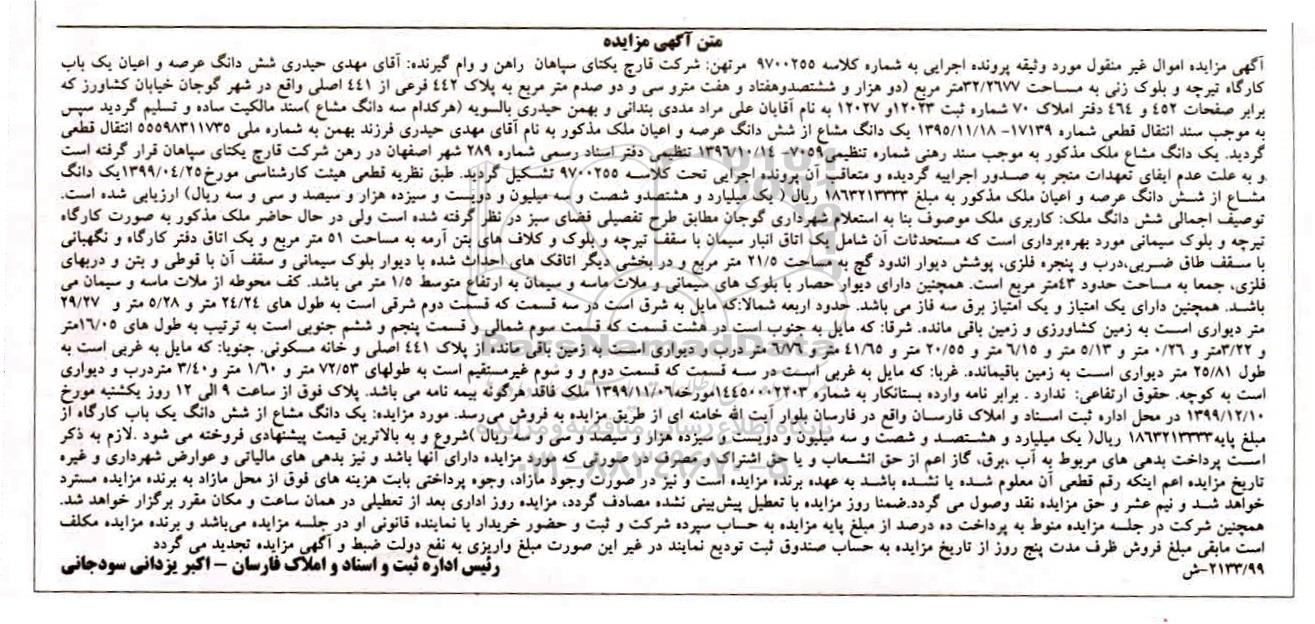 متن آگهی مزایده
آگهی مزایده اموال غیر منقول مورد وثیقه پرونده اجرایی به شماره کلاسه ۹۷۰۰۲۵۵ مرتهن: شرکت قارچ یکتای سپاهان راهن و وام گیرنده: آقای مهدی حیدری شش دانگ عرصه و اعیان یک باب
کارگاه تیرچه و بلوک زنی به مساحت ۳۲/۲۶۷۷متر مربع (دو هزار و ششتصدوهفتاد و هفت مترو سی و دو صدم متر مربع به پلاک ۴۴۲ فرعی از ۴۴۱ اصلی واقع در شهر گوجان خیابان کشاورز که
برابر صفحات ۴۵۲ و ۴۶۴ دفتر املاک ۷۰ شماره ثبت ۱۲۰۲۳و ۱۲۰۲۷ به نام آقایان علی مراد مددی بندانی و بهمن حیدری بالسویه (هرکدام سه دانگ مشاع )سند مالکیت ساده و تسلیم گردید سپس
به موجب سند انتقال قطعی شماره ۱۷۱۳۹- ۱۳۹۵/۱۱/۱۸ یک دانگ مشاع از شش دانگ عرصه و اعیان ملک مذکور به نام آقای مهدی حیدری فرزند بهمن به شماره ملی ۵۵۵۹۸۳۱۱۷۳۵ انتقال قطعی
گردید. یک دانگ مشاع ملک مذکور به موجب سند رهنی شماره تنظیمی۷۰۵۹- ۱۳۹۶/۱۰/۱۴ تنظیمی دفتر اسناد رسمی شماره ۲۸۹ شهر اصفهان در رهن شرکت قارچ یکتای سپاهان قرار گرفته است
.و به علت عدم ایفای تعهدات منجر به صدور اجراییه گردیده و متعاقب آن پرونده اجرایی تحت کلاسه ۹۷۰۰۲۵۵ تشکیل گردید. طبق نظریه قطعی هیئت کارشناسی مورخ۱۳۹۹/۰۴/۲۵یک دانگ
مشاع از شش دانگ عرصه و اعیان ملک مذکور به مبلغ ۱۸۶۳۲۱۳۳۳۳ ریال ( یک میلیارد و هشتصدو شصت و سه میلیون و دویست و سیزده هزار و سیصد و سی و سه ریال) ارزیابی شده است.
توصیف اجمالی شش دانگ ملک: کاربری ملک موصوف بنا به استعلام شهرداری گوجان مطابق طرح تفصیلی فضای سبز در نظر گرفته شده است ولی در حال حاضر ملک مذکور به صورت کارگاه
تیرچه و بلوک سیمانی مورد بهره‌برداری است که مستحدثات آن شامل یک اتاق انبار سیمان با سقف تیرچه و بلوک و کلاف های بتن آرمه به مساحت ۵۱ متر مربع و یک اتاق دفتر کارگاه و نگهبانی
با سقف طاق ضربی،درب و پنجره فلزی، پوشش دیوار اندود گچ به مساحت ۲۱/۵ متر مربع و در بخشی دیگر اتاقک های احداث شده با دیوار بلوک سیمانی و سقف آن با قوطی و بتن و دربهای
فلزی، جمعا به مساحت حدود ۴۳متر مربع است. همچنین دارای دیوار حصار با بلوک های سیمانی و ملات ماسه و سیمان به ارتفاع متوسط ۱/۵ متر می باشد. کف محوطه از ملات ماسه و سیمان می
باشد. همچنین دارای یک امتیاز و یک امتیاز برق سه فاز می باشد. حدود اربعه شمالا:که مایل به شرق است در سه قسمت که قسمت دوم شرقی است به طول های ۲۴/۲۴ متر و ۵/۲۸ متر و ۲۹/۲۷
متر دیواری است به زمین کشاورزی و زمین باقی مانده. شرقا: که مایل به جنوب است در هشت قسمت که قسمت سوم شمالی و قسمت پنجم و ششم جنوبی است به ترتیب به طول های ۱۶/۰۵متر
و ۳/۲۲متر و ۰/۲۶ متر و ۵/۱۳ متر و ۶/۱۵ متر و ۲۰/۵۵ متر و ۴۱/۶۵ متر و ۶/۷۶ متر درب و دیواری است به زمین باقی مانده از پلاک ۴۴۱ اصلی و خانه مسکونی. جنوبا: که مایل به غربی است به
طول ۲۵/۸۱ متر دیواری است به زمین باقیمانده. غربا: که مایل به غربی است در سه قسمت که قسمت دوم و و سوم غیرمستقیم است به طولهای ۷۲/۵۳ متر و ۱/۶۰ متر و۳/۴۰ متردرب و دیواری
است به کوچه. حقوق ارتفاعی: ندارد . برابر نامه وارده بستانکار به شماره ۱۴۴۵۰۰۰۲۲۰۳مورخه۱۳۹۹/۱۱/۰۶ ملک فاقد هرگونه بیمه نامه می باشد. پلاک فوق از ساعت ۹ الی ۱۲ روز یکشنبه مورخ
۱۳۹۹/۱۲/۱۰ در محل اداره ثبت اسناد و املاک فارسان واقع در فارسان بلوار آیت الله خامنه ای از طریق مزایده به فروش می‌رسد. مورد مزایده: یک دانگ مشاع از شش دانگ یک باب کارگاه از
مبلغ پایه۱۸۶۳۲۱۳۳۳۳ ریال( یک میلیارد و هشتصد و شصت و سه میلیون و دویست و سیزده هزار و سیصد و سی و سه ریال )شروع و به بالاترین قیمت پیشنهادی فروخته می شود .لازم به ذکر
است پرداخت بدهی های مربوط به آب ،برق، گاز اعم از حق انشعاب و یا حق اشتراک و مصرف در صورتی که مورد مزایده دارای آنها باشد و نیز بدهی های مالیاتی و عوارض شهرداری و غیره
تاریخ مزایده اعم اینکه رقم قطعی آن معلوم شده یا نشده باشد به عهده برنده مزایده است و نیز در صورت وجود مازاد، وجوه پرداختی بابت هزینه های فوق از محل مازاد به برنده مزایده مسترد
خواهد شد و نیم عشر و حق مزایده نقد وصول می گردد.ضمنا روز مزایده با تعطیل پیش‌بینی نشده مصادف گردد، مزایده روز اداری بعد از تعطیلی در همان ساعت و مکان مقرر برگزار خواهد شد.
همچنین شرکت در جلسه مزایده منوط به پرداخت ده درصد از مبلغ پایه مزایده به حساب سپرده شرکت و ثبت و حضور خریدار یا نماینده قانونی او در جلسه مزایده می‌باشد و برنده مزایده مکلف
است مابقی مبلغ فروش ظرف مدت پنج روز از تاریخ مزایده به حساب صندوق ثبت تودیع نمایند در غیر این صورت مبلغ واریزی به نفع دولت ضبط و آگهی مزایده تجدید می گردد
۲۱۳۳/۹۹-ش
رئیس اداره ثبت و اسناد و املاک فارسان – اکبر یزدانی سودجانی
ParsNamadData
پایگاه اطلاع رسانی مناقصه و مزایده
۰۲۱-۸۸۳۴۹۶۷۰-۵